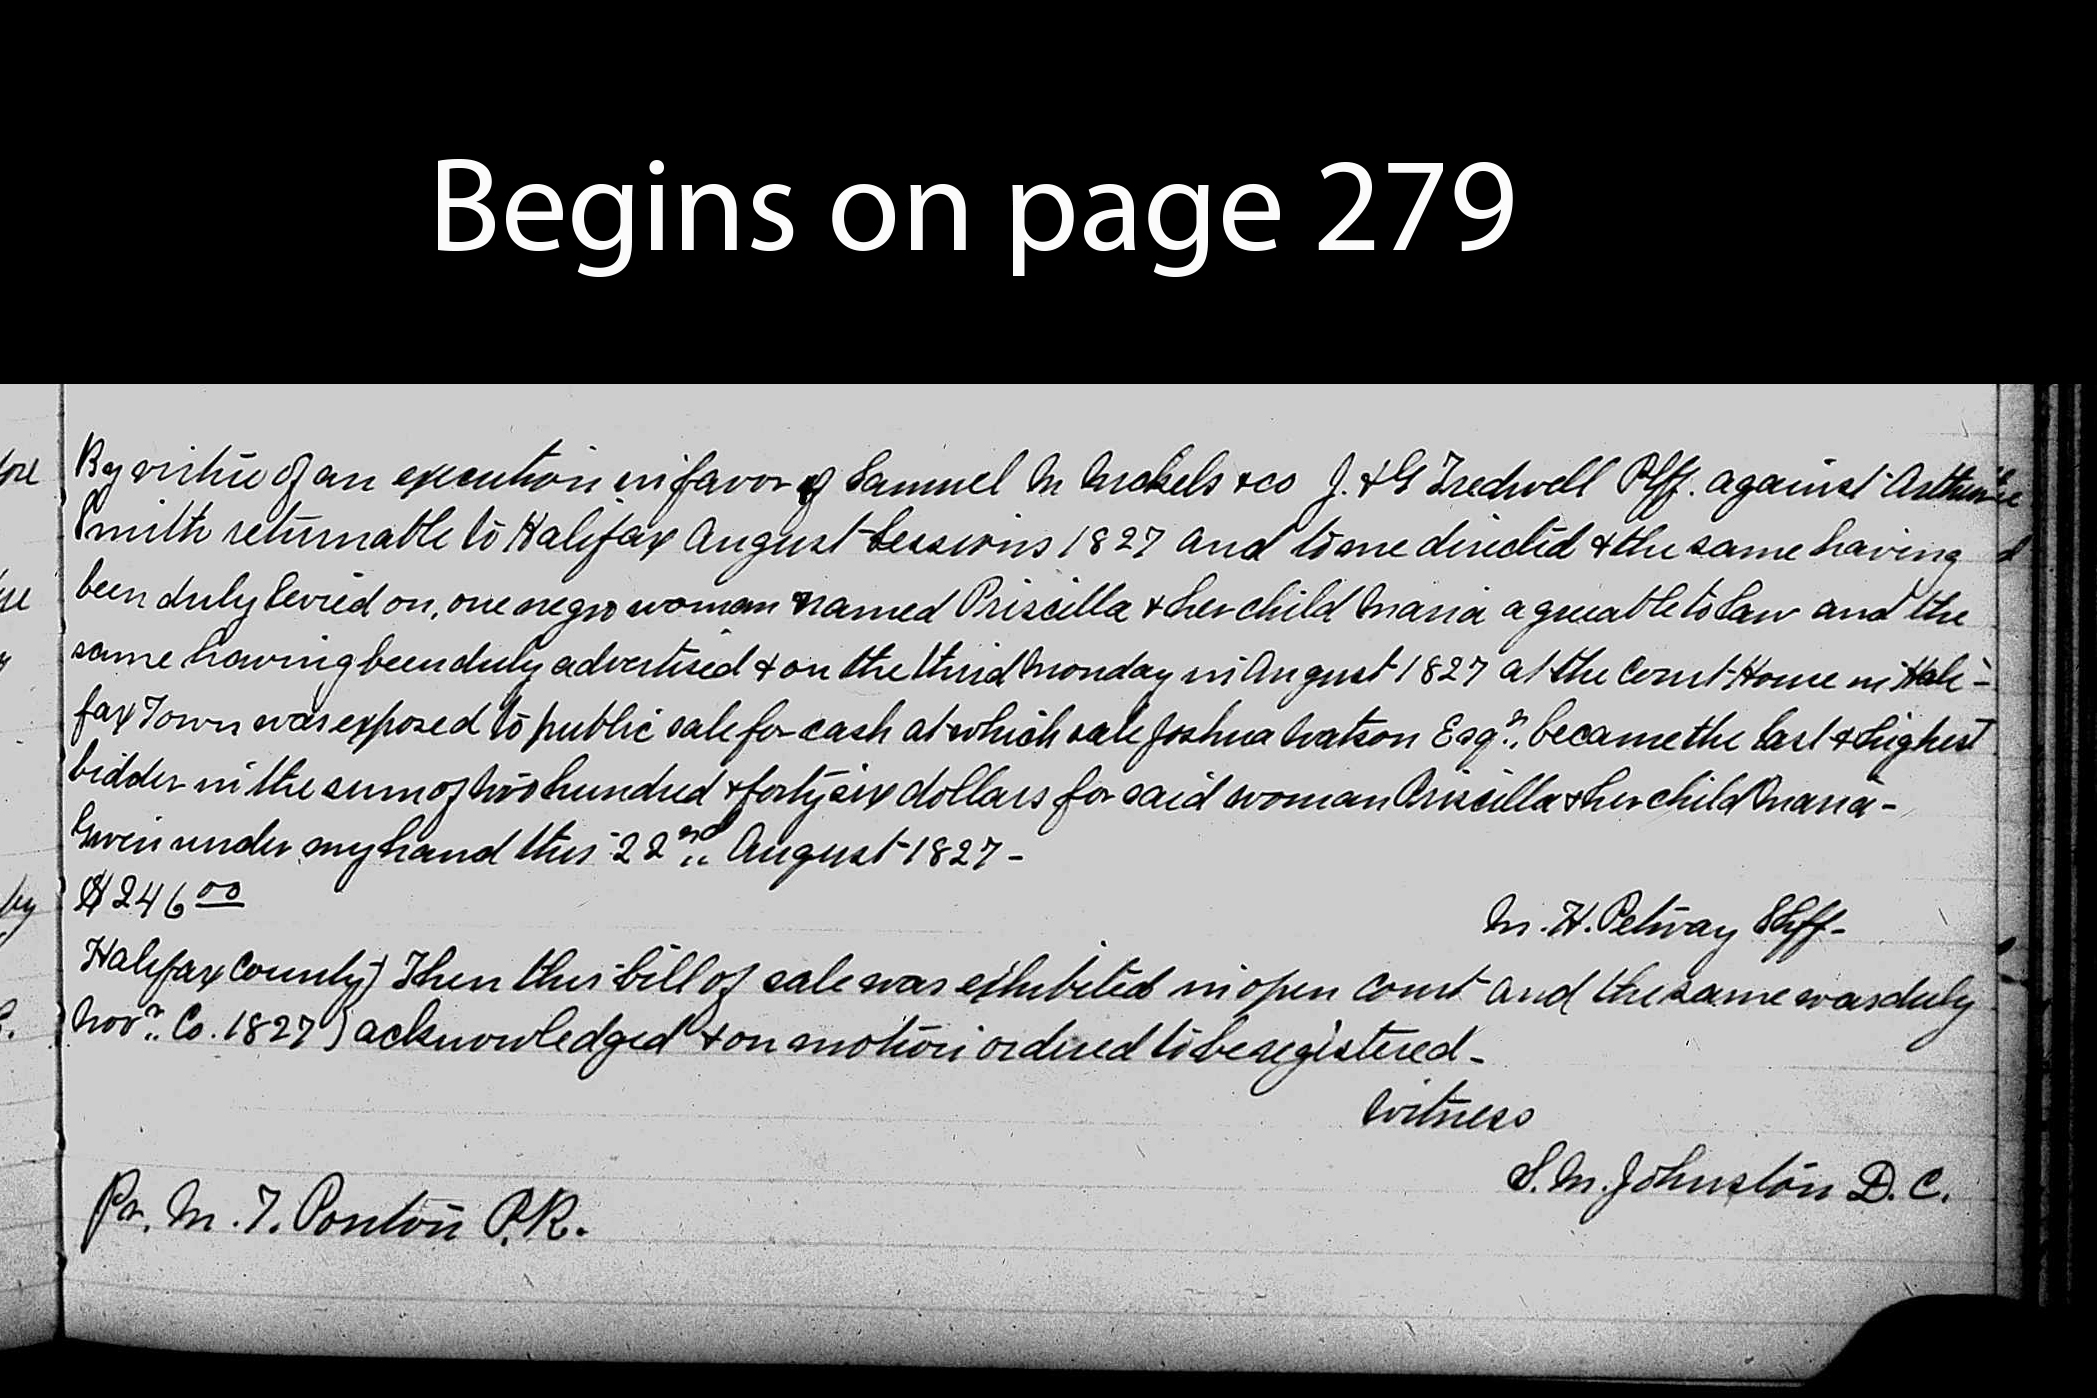 Begins on page 279
By virtue of an execution in favor of Samuel M Nickels & co J. & G Tredwell Plff. against Arthur
Smith returnable to Halifax August Sessions 1827 and to me directed & the same having
been duly levied on, one negro woman named Priscilla & her child Maria agreeable to law and the
same having been duly advertised & on the third Monday in August 1827 at the Court House in Hali-
fax Town was exposed to public sale for cash at which sale Joshua Watson Esqr. became the last & highest
bidder in the sum of two hundred & forty six dollars for said woman Priscilla & her child Maria -
Given under my hand this 22nd August 1827 -
$246 00
M. H. Petway Shff -
Halifax County } Then this bill of sale was exhibited in open court and the same was duly
Novr. Co. 1827 } acknowledged & on motion ordered to be registered -
Witness
S. M. Johnston D. C.
Pr. M. T. Ponton P. R.